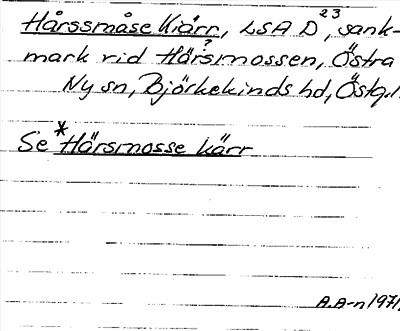 Hårssmåse Kiärr, LSA D²³, sank-
mark vid Härsmossen, Östra
Ny sn, Björkekinds hd, Östg.l.
Se *Härsmosse kärr
A.A-n 1971.